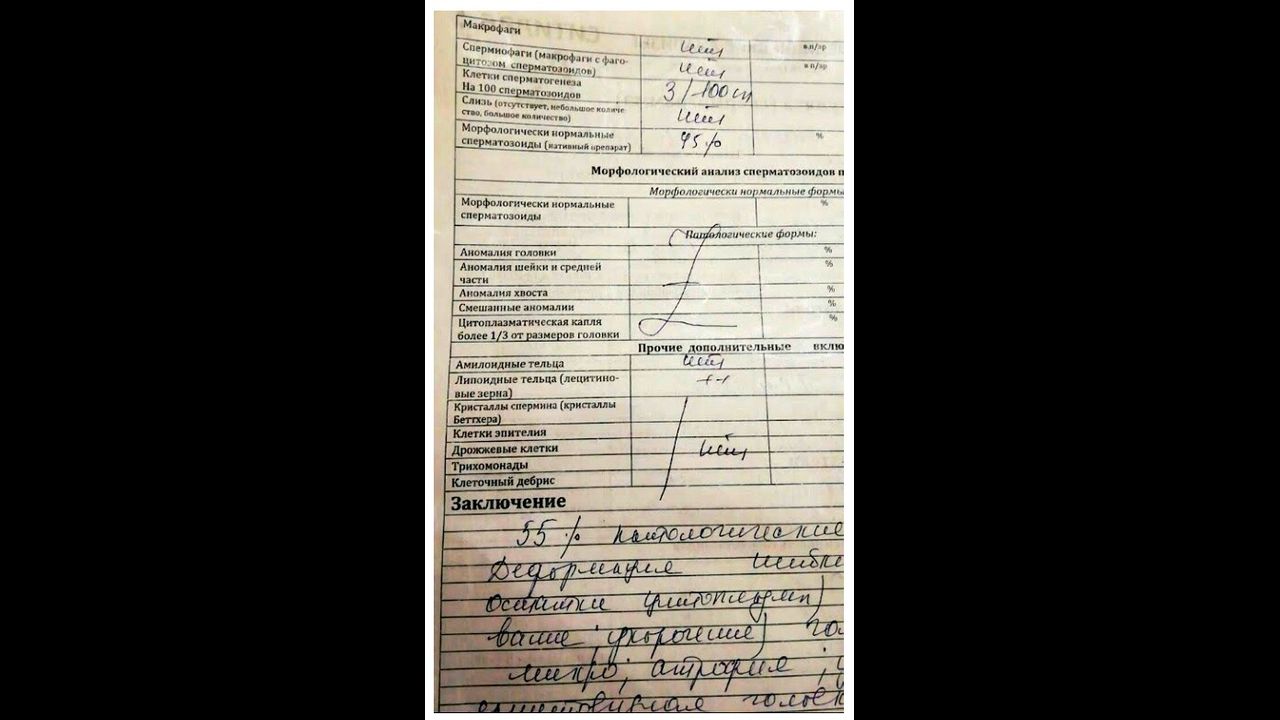 Макрофаги нет в.п/зр
Спермиофаги (макрофаги с фаго-
цитозом сперматозоидов) нет в п/зр
Клетки сперматогенеза
На 100 сперматозоидов 3/100сп
Слизь (отсутствует, небольшое количе
ство, большое количество) нет
Морфологически нормальные
сперматозоиды (нативный препарат) 45% %
Морфологический анализ сперматозоидов п
Морфологически нормальные формы
Морфологически нормальные %
сперматозоиды
Патологические формы:
Аномалия головки %
Аномалия шейки и средней %
части
Аномалия хвоста %
Смешанные аномалии %
Цитоплазматическая капля %
более 1/3 от размеров головки
Прочие дополнительные вклю
Амилоидные тельца нет
Липоидные тельца (лецитино- ++
вые зерна)
Кристаллы спермина (кристаллы
Беттхера)
Клетки эпителия
Дрожжевые клетки нет
Трихомонады
Клеточный дебрис
Заключение
55% патологические
Деформация шейки
остатки цитоплазмы)
вание; укорочение) гол
микро; атрофия;
голов